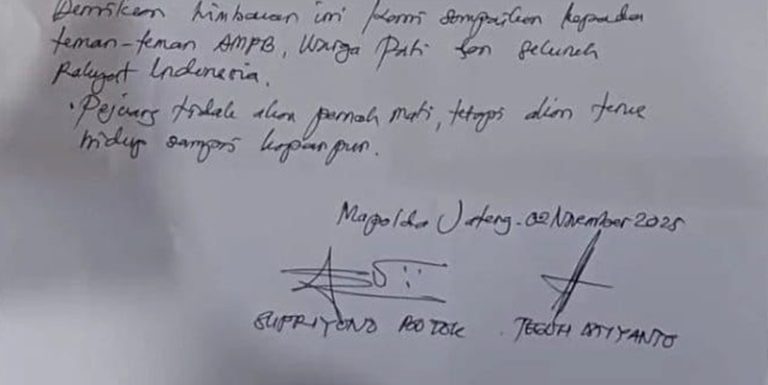 Demikian himbauan ini kami sampaikan kepada
teman-teman AMPB, Warga Pati dan seluruh
Rakyat Indonesia.
"Pejuang tidak akan pernah mati, tetapi akan terus
hidup sampai kapanpun.
Mapolda Jateng. 02 November 2025
SUPRIYONO BOTOK TEGUH ISTIYANTO